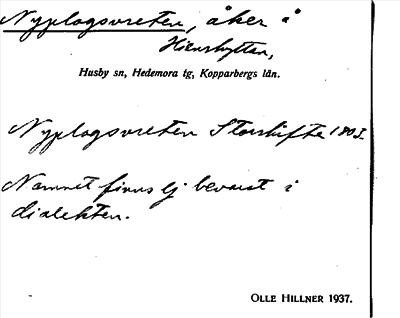 Nyplogsvreten, åker å
Hienshyttan,
Husby sn, Hedemora tg, Kopparbergs län.
Nyplogsvreten Storskifte 1803.
Namnet finns ej bevarat i
dialekten.
OLLE HILLNER 1937.